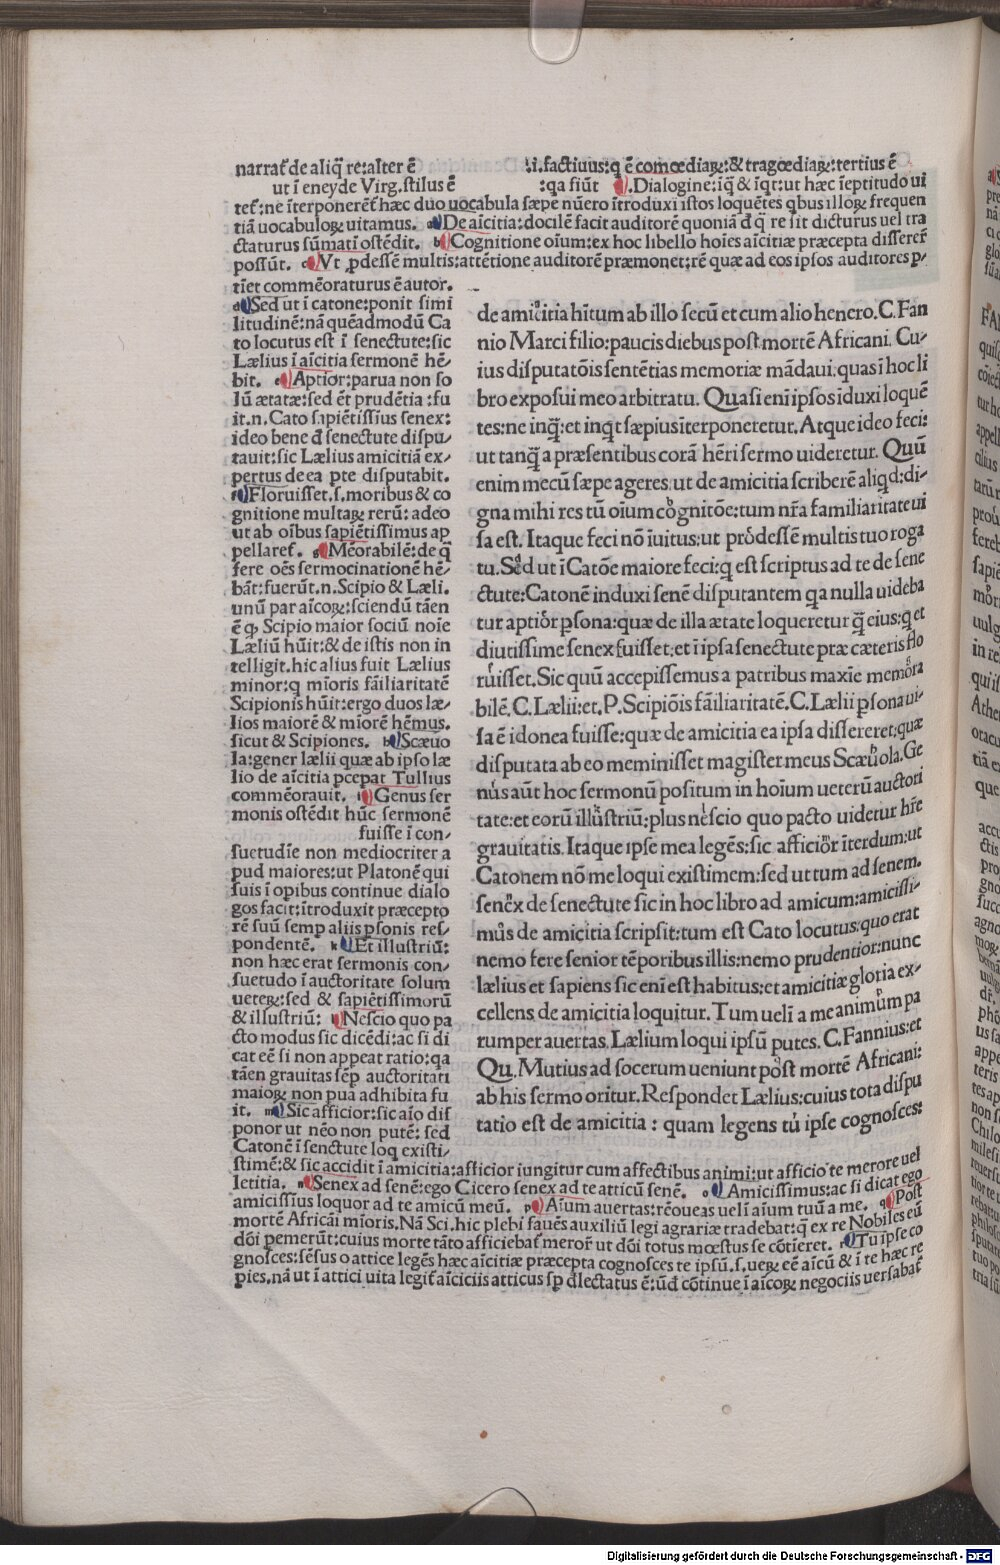 narrat᷑ de aliq̃ re: alter ē .i. factiuus: q ē comœdiaꝝ: & tragœdiaꝝ: tertius ē
ut ī eneyde Virg. stilus ē : qa fiūt Dialogine: iq̃ & īqt: ut hæc īeptitudo ui
tet᷑: ne īterponerēt᷑ hæc duo uocabula sæpe nūero ītroduxi istos loquētes qbus illoꝝ frequen
tiā uocabuloꝝ uitamus. a De aīcitia: docilē facit auditorē quoniā đ q̃ re sit dicturus uel tra
ctaturus sūmati ostēdit. b Cognitione oīum: ex hoc libello hoīes aīcitiæ præcepta disserer̃
possūt. c Vt ꝓdesse multis: attētione auditorē præmonet: rē quæ ad eos ipsos auditores p-
tīet commēoraturus ē autor.
d Sed ut ī catone: ponit simi
litudinē: nā quēadmodū Ca
to locutus est ī senectute: sic
Lælius ī aīcitia sermonē hē-
bit. e Aptior: parua non so
lū ætatæ: sed et prudētia: fu
it. n. Cato sapiētissius senex:
ideo bene đ senectute dispu-
tauit: sic Lælius amicitiā ex-
pertus de ea pte disputabit.
f Floruisset. s. moribus & co
gnitione multaꝝ rerū: adeo
ut ab oībus sapiētissimus ap
pellaret᷑. g Mēorabilē: de q̃
fere oēs sermocinationē hē-
bāt: fuerūt. n. Scipio & Læli.
unū par aīcoꝝ: sciendū tāen
ē ꝙ Scipio maior sociū noīe
Læliū hūit: & de istis non in
telligit. hic alius fuit Lælius
minor: q mīoris fāiliaritatē
Scipionis hūit: ergo duos læ-
lios maiorē & mīorē hēmus.
sicut & Scipiones. h Scæuo
la: gener lælii quæ ab ipso læ
lio de aīcitia pcepat Tullius
commēorauit. i Genus ser
monis ostēdit hūc sermonē
fuisse ī con-
suetudīe non mediocriter a
pud maiores: ut Platonē qui
suis ī opibus continue dialo
gos facit: ītroduxit præcepto
rē suū semp aliis psonis res-
pondentē. k Et illustriū:
non hæc erat sermonis con-
suetudo ī auctoritate solum
ueteꝝ: sed & sapiētissimorū
& illustriū: l Nescio quo pa
cto modus sic dicēdi: ac si di
cat eē si non appeat ratio: qa
tāen grauitas sēp auctoritati
maioꝝ non pua adhibita fu
it. m Sic afficior: sic aīo dis
ponor ut nēo non putē: sed
Catonē ī senctute loq existi-
de amicitia hītum ab illo secū et cum alio henero. C. Fan
nio Marci filio: paucis diebus post mortē Africani. Cu-
ius disputatōis sentētias memoriæ mādaui. quas ī hoc li
bro exposui meo arbitratu. Quasi enī ipsos īduxi loquē
tes: ne inq̃: et inqt sæpius iterponetetur. Atque ideo feci:
ut tanq̃ a præsentibus corā hēri sermo uideretur. Quū
enim mecū sæpe ageres. ut de amicitia scriberē aliqd: di-
gna mihi res tū oīum cognitōe: tum nr̃a familiaritate ui
sa est. Itaque feci nō īuitus: ut prodessē multis tuo roga
tu. Sed ut ī Catōe maiore feci: q est scriptus ad te de sene
ctute: Catonē induxi senē disputantem qa nulla uideba
tur aptior psona: quæ de illa ætate loqueretur q̃ eius: q et
diutissime senex fuisset: et ī ipsa senectute præ cæteris flo
ruisset. Sic quū accepissemus a patribus maxīe memora
bilē. C. Lælii: et. P. Scipiōis fāiliaritatē. C. Lælii psona ui-
sa ē idonea fuisse: quæ de amicitia ea ipsa dissereret: quæ
disputata ab eo meminisset magister meus Scæuola. Ge
nus aūt hoc sermonū positum in hoīum ueterū auctori
tate: et eorū illustriū: plus nescio quo pacto uidetur hr̃e
grauitatis. Itaque ipse mea legēs: sic afficior īterdum: ut
Catonem nō me loqui existimem: sed ut tum ad senem.
senex de senectute sic in hoc libro ad amicum: amicissi-
mus de amicitia scripsit: tum est Cato locutus: quo erat
nemo fere senior tēporibus illis: nemo prudentior: nunc
lælius et sapiens sic enī est habitus: et amicitiæ gloria ex-
cellens de amicitia loquitur. Tum uelī a me animum pa
rumper auertas. Lælium loqui ipsū putes. C. Fannius: et
Qu. Mutius ad socerum ueniunt post mortē Africani:
ab his sermo oritur. Respondet Lælius: cuius tota dispu
tatio est de amicitia: quam legens tu ipse cognosces:
stimē: & sic accidit ī amicitia: afficior iungitur cum affectibus animi: ut afficio te merore uel
letitia. n Senex ad senē: ego Cicero senex ad te atticū senē. o Amicissimus: ac si dicat ego
amicissius loquor ad te amicū meū. p Aīum auertas: rēoueas uelī aīum tuū a me. q Post
mortē Africāi mīoris. Nā Sci. hic plebi fauēs auxiliū legi agrariæ tradebat: q ex re Nobiles eū
dōi pemerūt: cuius morte tāto afficiebat᷑ meror̃ ut dōi totus mœstus se cōtīeret. r Tu ipse co
gnosces: sēsus o attice legēs hæc aīcitiæ præcepta cognosces te ipsū. s. ueꝝ eē aīcū & ī te hæc re
pies. nā ut ī attici uita legit᷑ aīciciis atticus sp đlectatus ē: uđ cōtinue ī aīcoꝝ negociis uersabat᷑
Digitalisierung gefördert durch die Deutsche Forschungsgemeinschaft - DFG